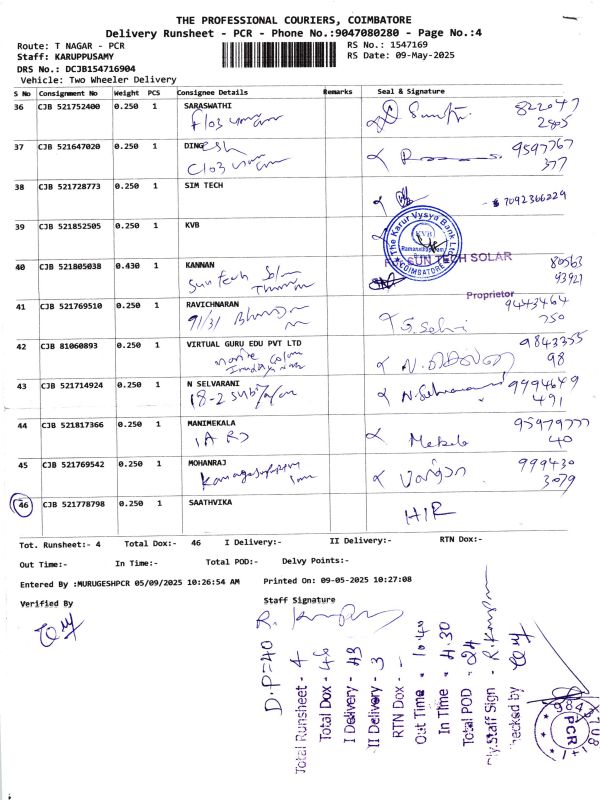 THE PROFESSIONAL COURIERS, COIMBATORE
Delivery Runsheet - PCR - Phone No.:9047080280 - Page No.:4
Route: T NAGAR - PCR
RS No.: 1547169
Staff: KARUPPUSAMY
RS Date: 09-May-2025
DRS No.: DCJB154716904
Vehicle: Two Wheeler Delivery
S No Consignment No Weight PCS Consignee Details Remarks Seal & Signature
36 CJB 521752400 0.250 1 SARASWATHI
822047
2805
37 CJB 521647020 0.250 1 DINGesh
9597767
377
38 CJB 521728773 0.250 1 SIM TECH
7092366229
39 CJB 521852505 0.250 1 KVB
The Karur Vysya Bank Ltd
KVB
COIMBATORE
40 CJB 521805038 0.430 1 KANNAN
SUN TECH SOLAR
80563
93921
Proprietor
41 CJB 521769510 0.250 1 RAVICHNARAN
91/31
9443464
750
42 CJB 81060893 0.250 1 VIRTUAL GURU EDU PVT LTD
9843355
98
43 CJB 521714924 0.250 1 N SELVARANI
18-2
9994649
491
44 CJB 521817366 0.250 1 MANIMEKALA
1A RJ
95979777
40
45 CJB 521769542 0.250 1 MOHANRAJ
999430
3079
46 CJB 521778798 0.250 1 SAATHVIKA
HIR
Tot. Runsheet:- 4 Total Dox:- 46 I Delivery:- II Delivery:- RTN Dox:-
Out Time:- In Time:- Total POD:- Delvy Points:-
Entered By :MURUGESHPCR 05/09/2025 10:26:54 AM Printed On: 09-05-2025 10:27:08
Verified By
Staff Signature
D.P=40
Total Runsheet - 4
Total Dox - 46
I Delivery - 43
II Delivery - 3
RTN Dox - -
Out Time - 10.40
In Time - 4.30
Total POD - 24
Dly.Staff Sign -
Checked by
PCR